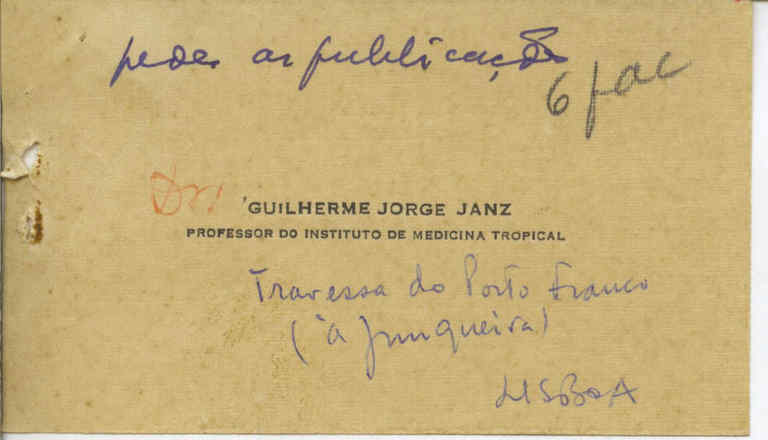 pede as publicações
6 fac
Dr.
GUILHERME JORGE JANZ
PROFESSOR DO INSTITUTO DE MEDICINA TROPICAL
Travessa do Porto Franco
(à Junqueira)
LISBOA